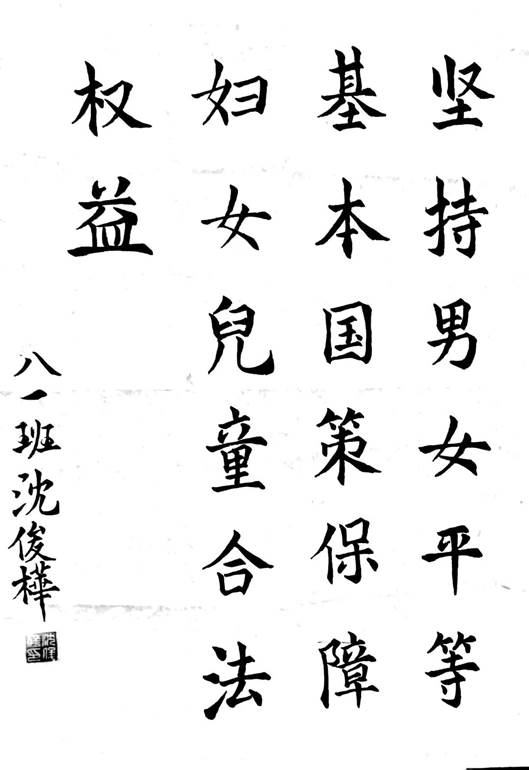 坚持男女平等
基本国策保障
妇女兒童合法
权益
八一班沈俊樺